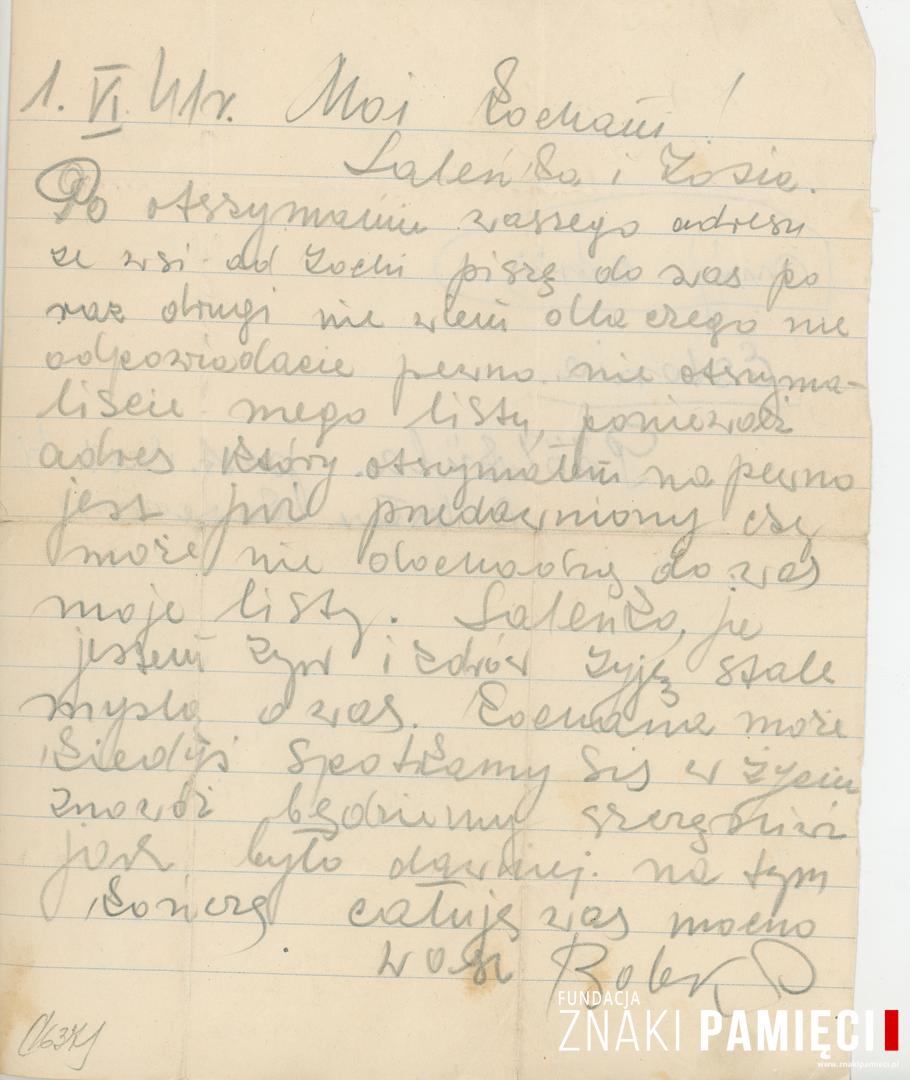 1. VI 41r. Moi Kochani!
Laleńka i Zosia.
Po otszymaniu waszego adresu
ze wsi od Zochi piszę do was po
raz drugi nie wiem dlaczego nie
odpowiadacie pewno nie otszyma-
liście mego listu, poniewarz
adres który otszymałem na pewno
jest już pszedawniony czy
może nie dochodzą do was
moje listy. Laleńko, ja
jestem żyw i zdrów żyję stale
myslą o was. Kochana może
kiedyś spotkamy się w życiu
znowóż będziemy szczęśliwi
jak było dawniej. na tym
kończę całuję was mocno
wasz
(1637)
FUNDACJA
ZNAKI PAMIĘCI
www.znakipamieci.pl